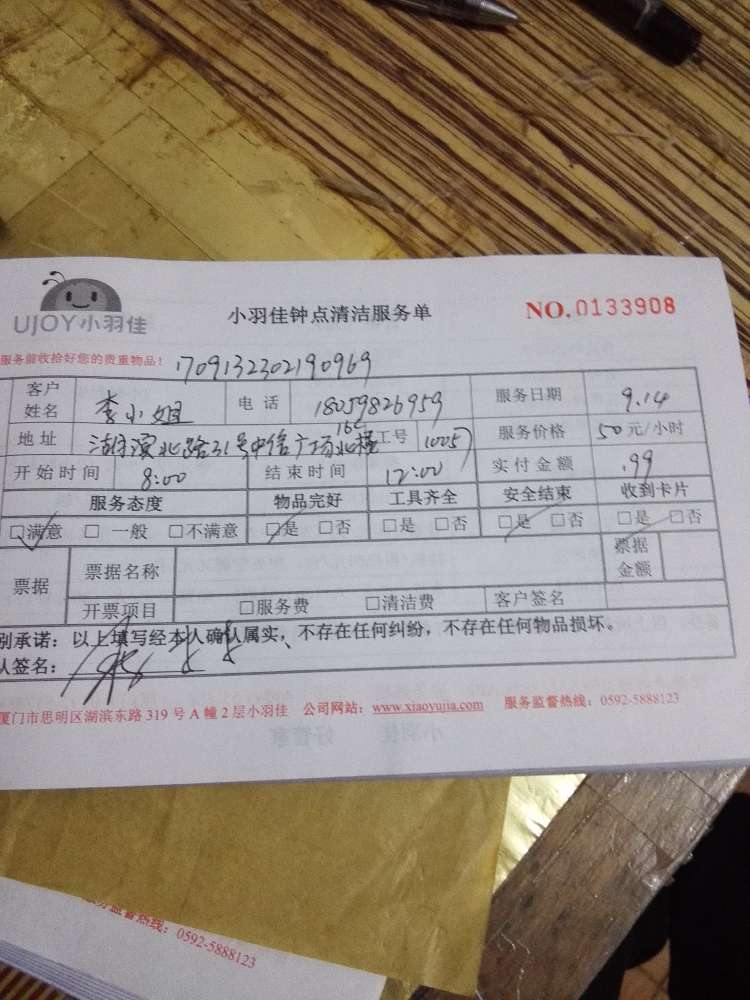 UJOY小羽佳 小羽佳钟点清洁服务单 NO.0133908
服务前收拾好您的贵重物品! 1709132302190969
客户姓名 李小姐 电话 18059826959 服务日期 9.14
地址 湖滨北路31号中信广场北楼16C 工号 1005 服务价格 50元/小时
开始时间 8:00 结束时间 12:00 实付金额 .99
服务态度 物品完好 工具齐全 安全结束 收到卡片
□满意 □一般 □不满意 □是 □否 □是 □否 □是 □否 □是 □否
票据 票据名称 票据金额
开票项目 □服务费 □清洁费 客户签名
别承诺:以上填写经本人确认属实、不存在任何纠纷,不存在任何物品损坏。
人签名:
厦门市思明区湖滨东路319号A幢2层小羽佳 公司网站:www.xiaoyujia.com 服务监督热线:0592-5888123
服务监督热线:0592-5888123